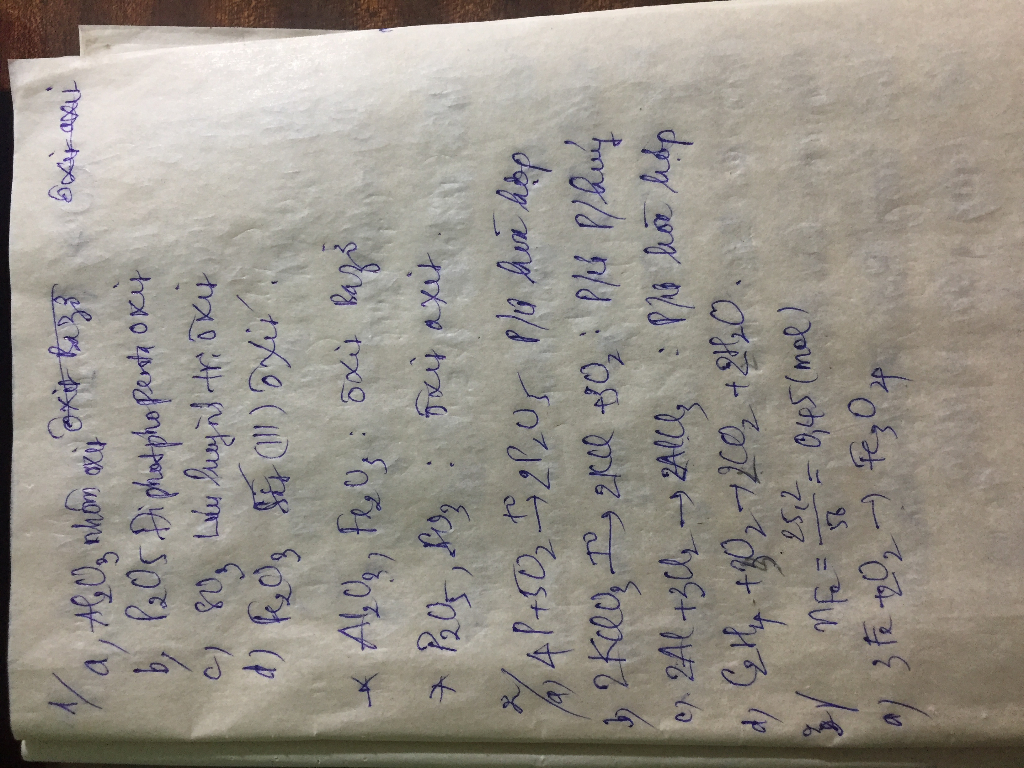 1/
a, Al2O3 nhôm oxit
b, P2O5 Điphotphopentaoxit
c) SO3 Lưu huỳnh tri oxit
d) Fe2O3 Sắt (III) oxit.
* Al2O3, Fe2O3: oxit bazơ
* P2O5, SO3: oxit axit
2/
a) 4P + 5O2 t° → 2P2O5 P/ứ hoá hợp
b) 2KClO3 t° → 2KCl + 3O2: P/ứ P/huỷ
c, 2Al + 3Cl2 → 2AlCl3 : P/ứ hoá hợp
d, C2H4 + 3O2 → 2CO2 + 2H2O.
3/ nFe = 25,2/56 = 0,45 (mol)
a) 3Fe + 2O2 → Fe3O4